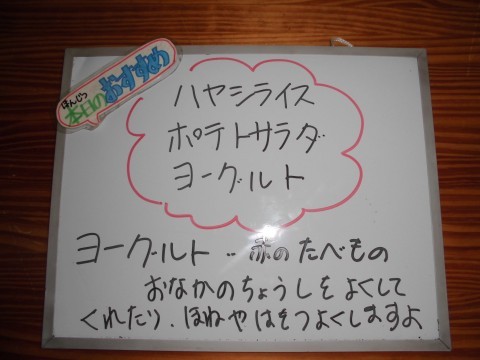 ほんじつ
本日のおすすめ
ハヤシライス
ポテトサラダ
ヨーグルト
ヨーグルト‥赤のたべもの
おなかのちょうしをよくして
くれたり、ほねやはをつよくしますよ